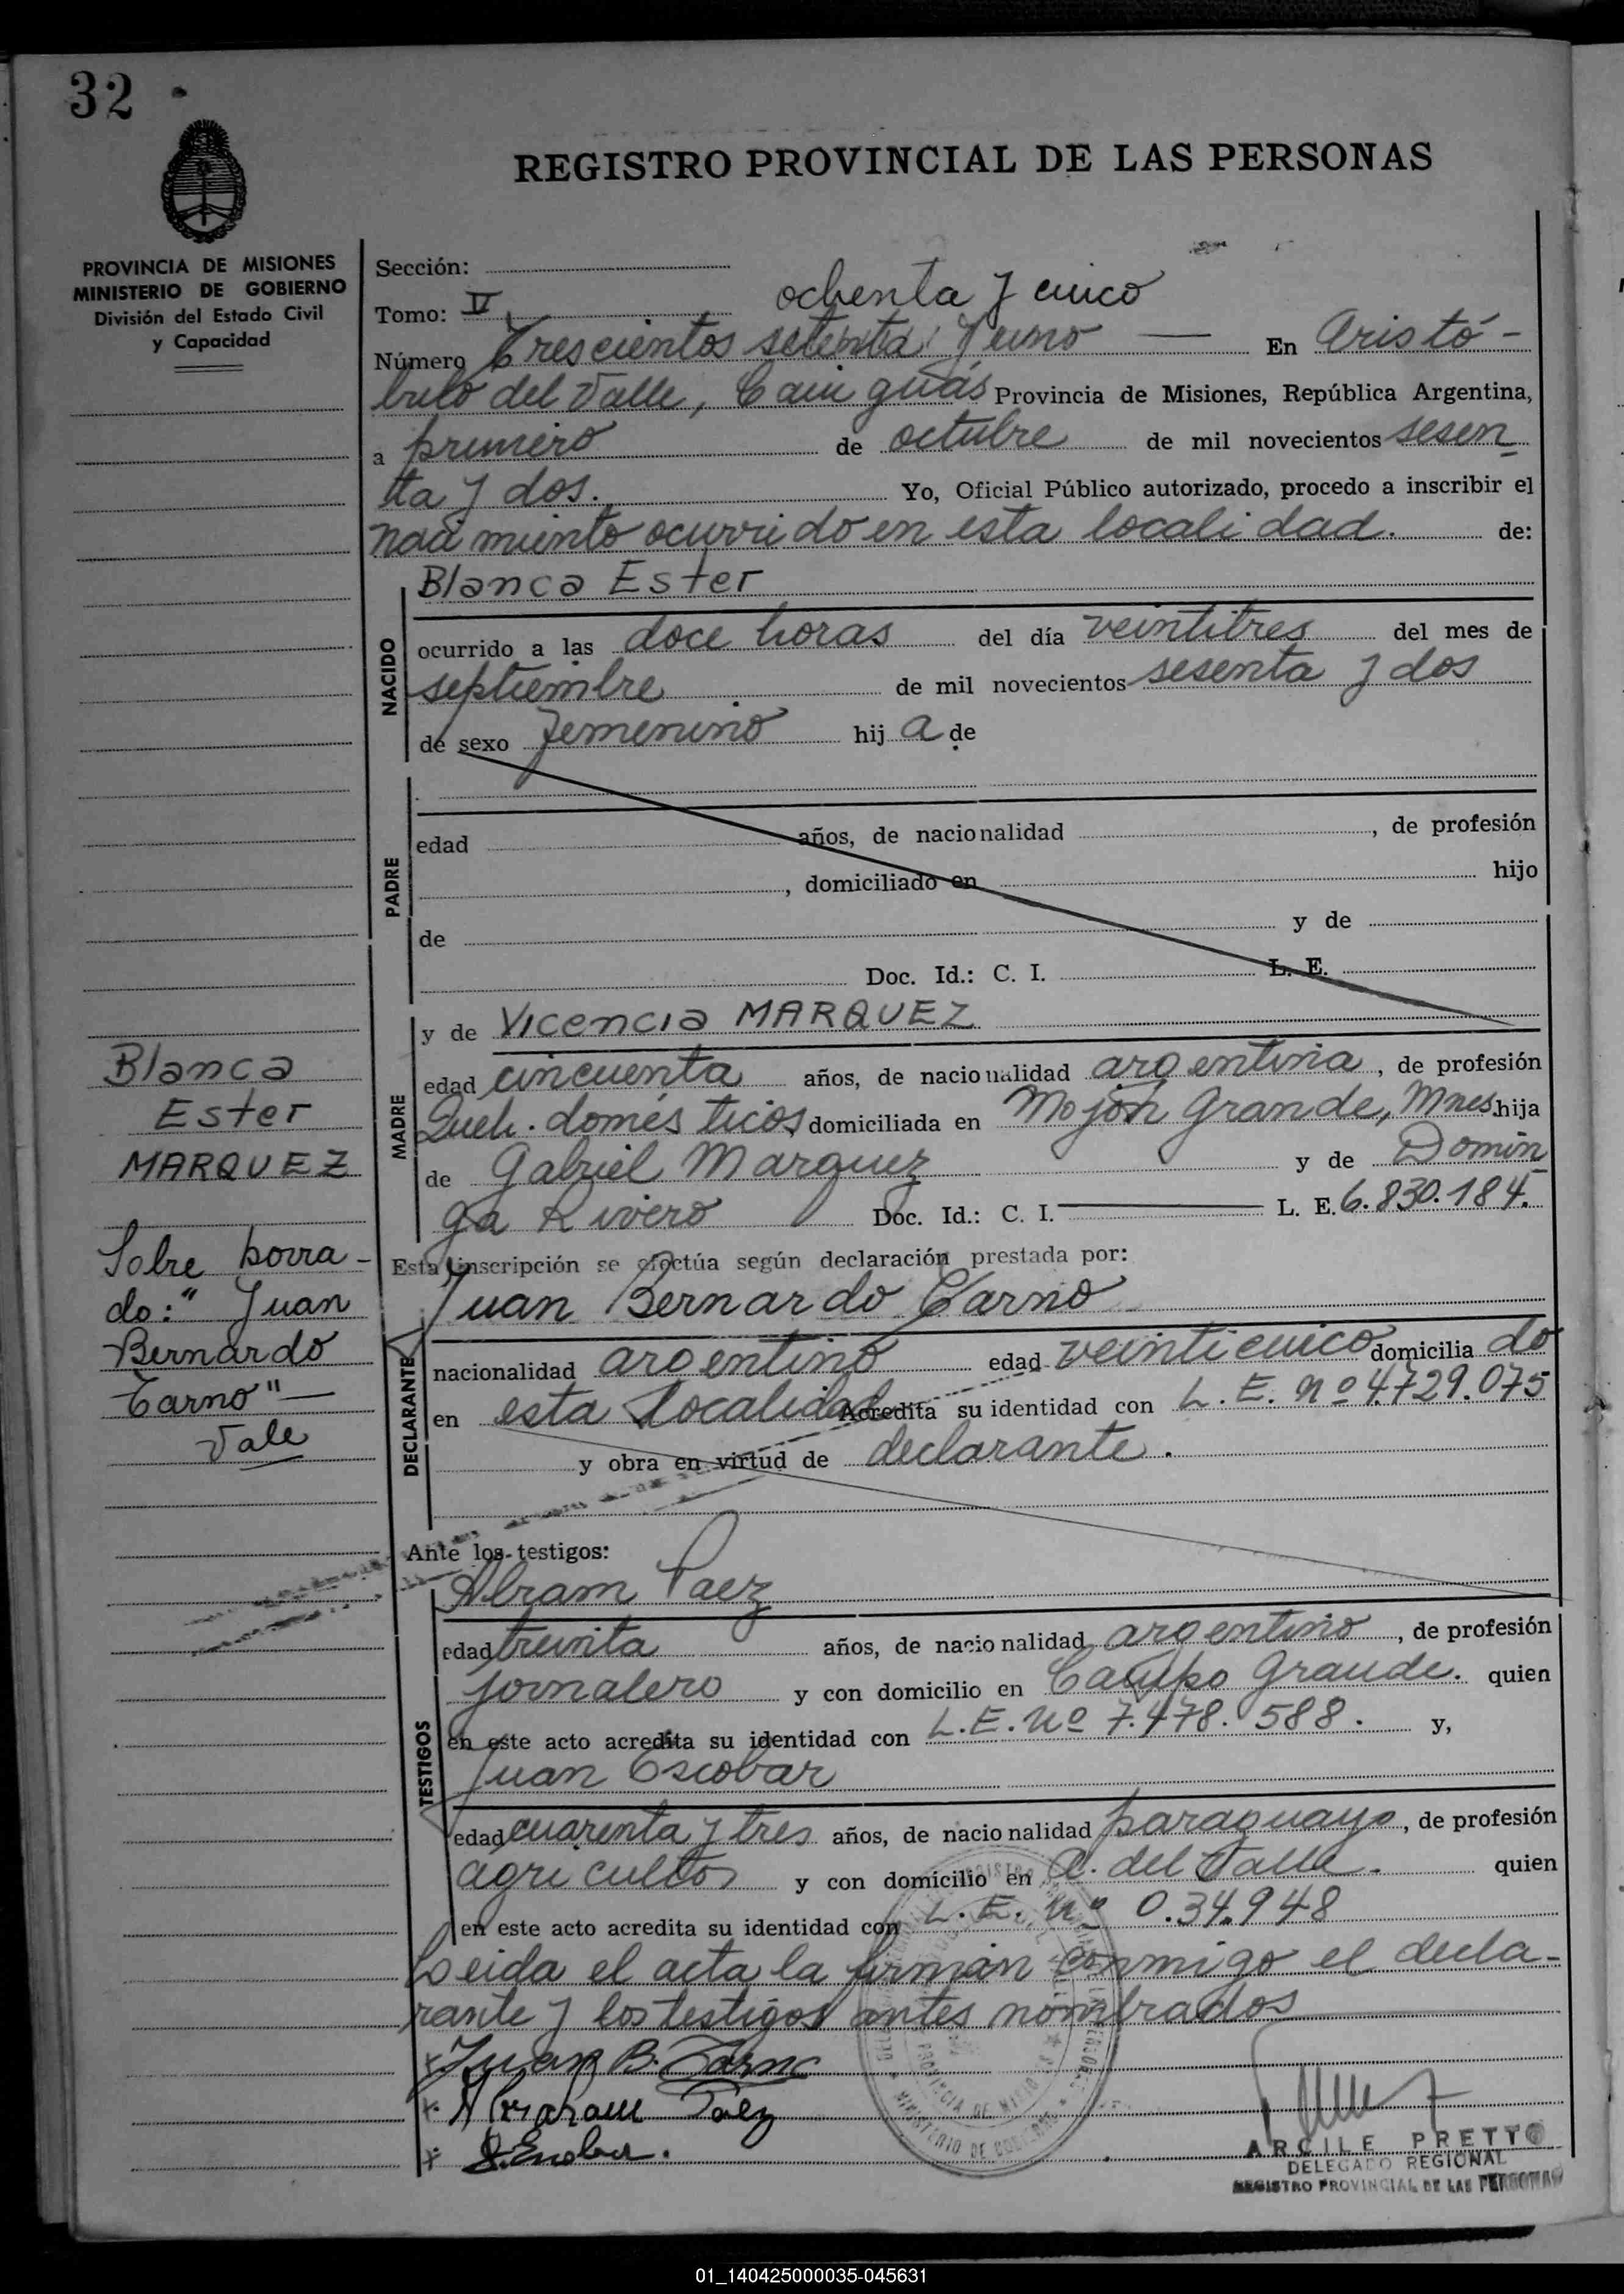 32
REGISTRO PROVINCIAL DE LAS PERSONAS
PROVINCIA DE MISIONES
MINISTERIO DE GOBIERNO
División del Estado Civil
y Capacidad
Sección:
Tomo: IV
ochenta y cinco
Número Trescientos setenta y uno — En Aristó-
bulo del Valle, Cainguás Provincia de Misiones, República Argentina,
a primero de octubre de mil novecientos sesen
ta y dos. Yo, Oficial Público autorizado, procedo a inscribir el
nacimiento ocurrido en esta localidad. de:
NACIDO
Blanca Ester
ocurrido a las doce horas del día veintitres del mes de
septiembre de mil novecientos sesenta y dos
de sexo femenino hij a de
PADRE
edad años, de nacionalidad , de profesión
, domiciliado en hijo
de y de
Doc. Id.: C. I. L. E.
MADRE
y de Vicencia MARQUEZ
edad cincuenta años, de nacionalidad argentina, de profesión
Queh. domésticos, domiciliada en Mojón Grande, Mnes. hija
de Gabriel Marquez y de Domin
ga Rivero Doc. Id.: C. I. — L. E. 6.830.184.
Esta inscripción se efectúa según declaración prestada por:
DECLARANTE
Juan Bernardo Tarno
nacionalidad argentino edad veinticinco domicilia do
en esta Localidad Acredita su identidad con L. E. nº 4.729.075
y obra en virtud de declarante.
Blanca
Ester
MARQUEZ
Sobre borra-
do: " Juan
Bernardo
Tarno" —
Vale
Ante los testigos:
TESTIGOS
Abram Paez
edad treinta años, de nacionalidad argentino, de profesión
jornalero y con domicilio en Campo Grande. quien
en este acto acredita su identidad con L.E. Nº 7.478.588. y,
Juan Escobar
edad cuarenta y tres años, de nacionalidad paraguayo, de profesión
agricultor y con domicilio en A. del Valle. quien
en este acto acredita su identidad con L. E. nº 0.34.948
Leida el acta la firman conmigo el decla-
rante y los testigos antes nombrados
x Juan B. Tarno
x Abraham Paez
x J. Escobar.
PROVINCIA DE MISIONES
MINISTERIO DE GOBIERNO
ARCILE PRETTO
DELEGADO REGIONAL
REGISTRO PROVINCIAL DE LAS PERSONAS
01_140425000035-045631